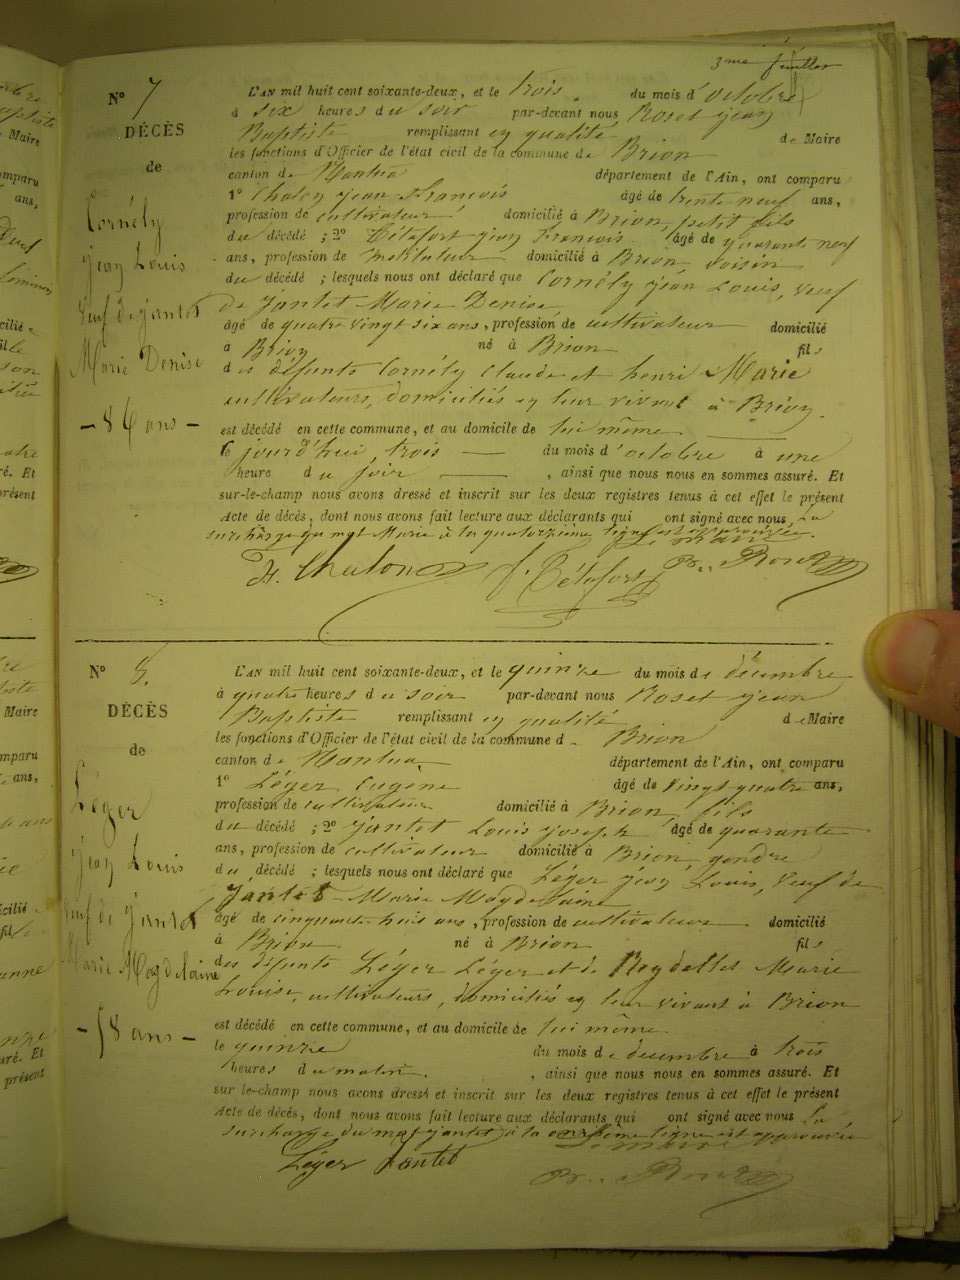 3me feuillet
N° 7
DÉCÈS
de
Cornély
jean Louis
Veuf de jantet
Marie Denise
- 86 ans -
L'AN mil huit cent soixante-deux, et le trois du mois d'octobre
à six heures du soir par-devant nous Roset jean
Baptiste remplissant en qualité de Maire
les fonctions d'Officier de l'état civil de la commune de Brion
canton de Nantua département de l'Ain, ont comparu
1° jean François âgé de trente neuf ans,
profession de cultivateur domicilié à Brion, petit fils
du décédé ; 2° Tétafort jean François âgé de quarante neuf
ans, profession de instituteur domicilié à Brion, voisin
du décédé ; lesquels nous ont déclaré que Cornély jean Louis, veuf
de Jantet Marie Denise
âgé de quatre vingt six ans, profession de cultivateur domicilié
à Brion né à Brion fils
des défunts Cornély Claude et henri Marie
cultivateurs, domiciliés en leur vivant à Brion.
est décédé en cette commune, et au domicile de lui même.
le jourd'hui trois du mois d'octobre à une
heure du soir, ainsi que nous nous en sommes assuré. Et
sur-le-champ nous avons dressé et inscrit sur les deux registres tenus à cet effet le présent
Acte de décès, dont nous avons fait lecture aux déclarants qui ont signé avec nous, la
surcharge du mot Marie à la quatorzième ligne est approuvée.
Le Maire
f. Tétafort
N° 8.
DÉCÈS
de
Léger
jean Louis
Veuf de jantet
Marie Magdelaine
- 58 ans -
L'AN mil huit cent soixante-deux, et le quinze du mois de décembre
à quatre heures du soir par-devant nous Roset jean
Baptiste remplissant en qualité de Maire
les fonctions d'Officier de l'état civil de la commune d Brion
canton de Nantua département de l'Ain, ont comparu
1° Léger Eugène âgé de vingt quatre ans,
profession de cultivateur domicilié à Brion, fils
du décédé ; 2° jantet Louis joseph âgé de quarante
ans, profession de cultivateur domicilié à Brion gendre
du décédé ; lesquels nous ont déclaré que Léger jean Louis, veuf de
Jantet Marie Magdelaine
âgé de cinquante huit ans, profession de cultivateur domicilié
à Brion né à Brion fils
des défunts Léger Léger et de Reydellet Marie
Louise, cultivateurs, domiciliés en leur vivant à Brion
est décédé en cette commune, et au domicile de lui même.
le quinze du mois de décembre à trois
heures du matin, ainsi que nous nous en sommes assuré. Et
sur le-champ nous avons dressé et inscrit sur les deux registres tenus à cet effet le présent
Acte de décès, dont nous avons fait lecture aux déclarants qui ont signé avec nous la
surcharge du mot jantet à la onzième ligne est approuvée
Le maire
Léger Jantet